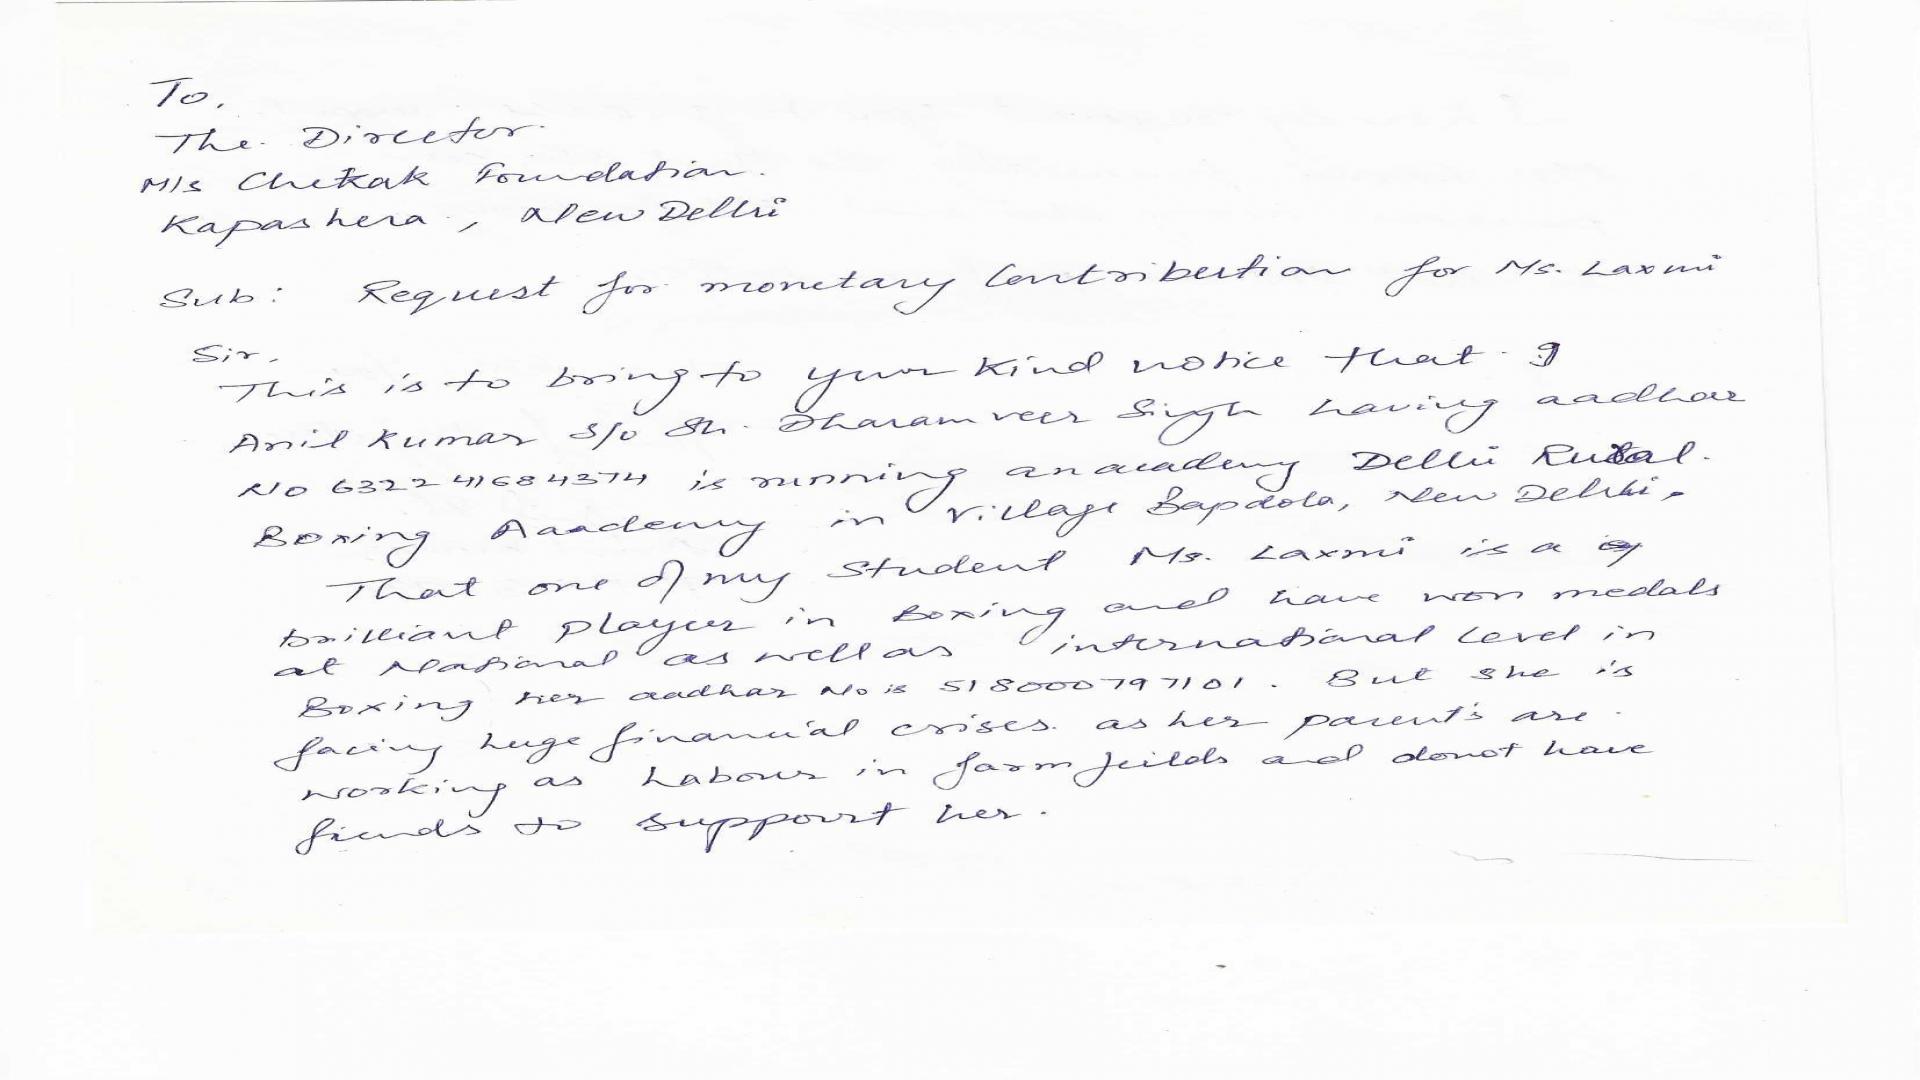 To,
The Director
M/s Chetak Foundation.
Kapashera, New Delhi
Sub: Request for monetary Contribution for Ms. Laxmi
Sir,
This is to bring to your kind notice that I
Anil Kumar S/o Sh. Dharamveer Singh having aadhar
No 6322 41684374 is running an academy Delhi Rural.
Boxing Aaademy in Village Bapdola, New Delhi.
That one of my Student Ms. Laxmi is a
brilliant player in Boxing and have won medals
at National as well as international level in
Boxing her aadhar No is 518000797101. But she is
facing huge financial crises. as her parent's are.
working as Labour in farm feilds and donot have
funds to support her.